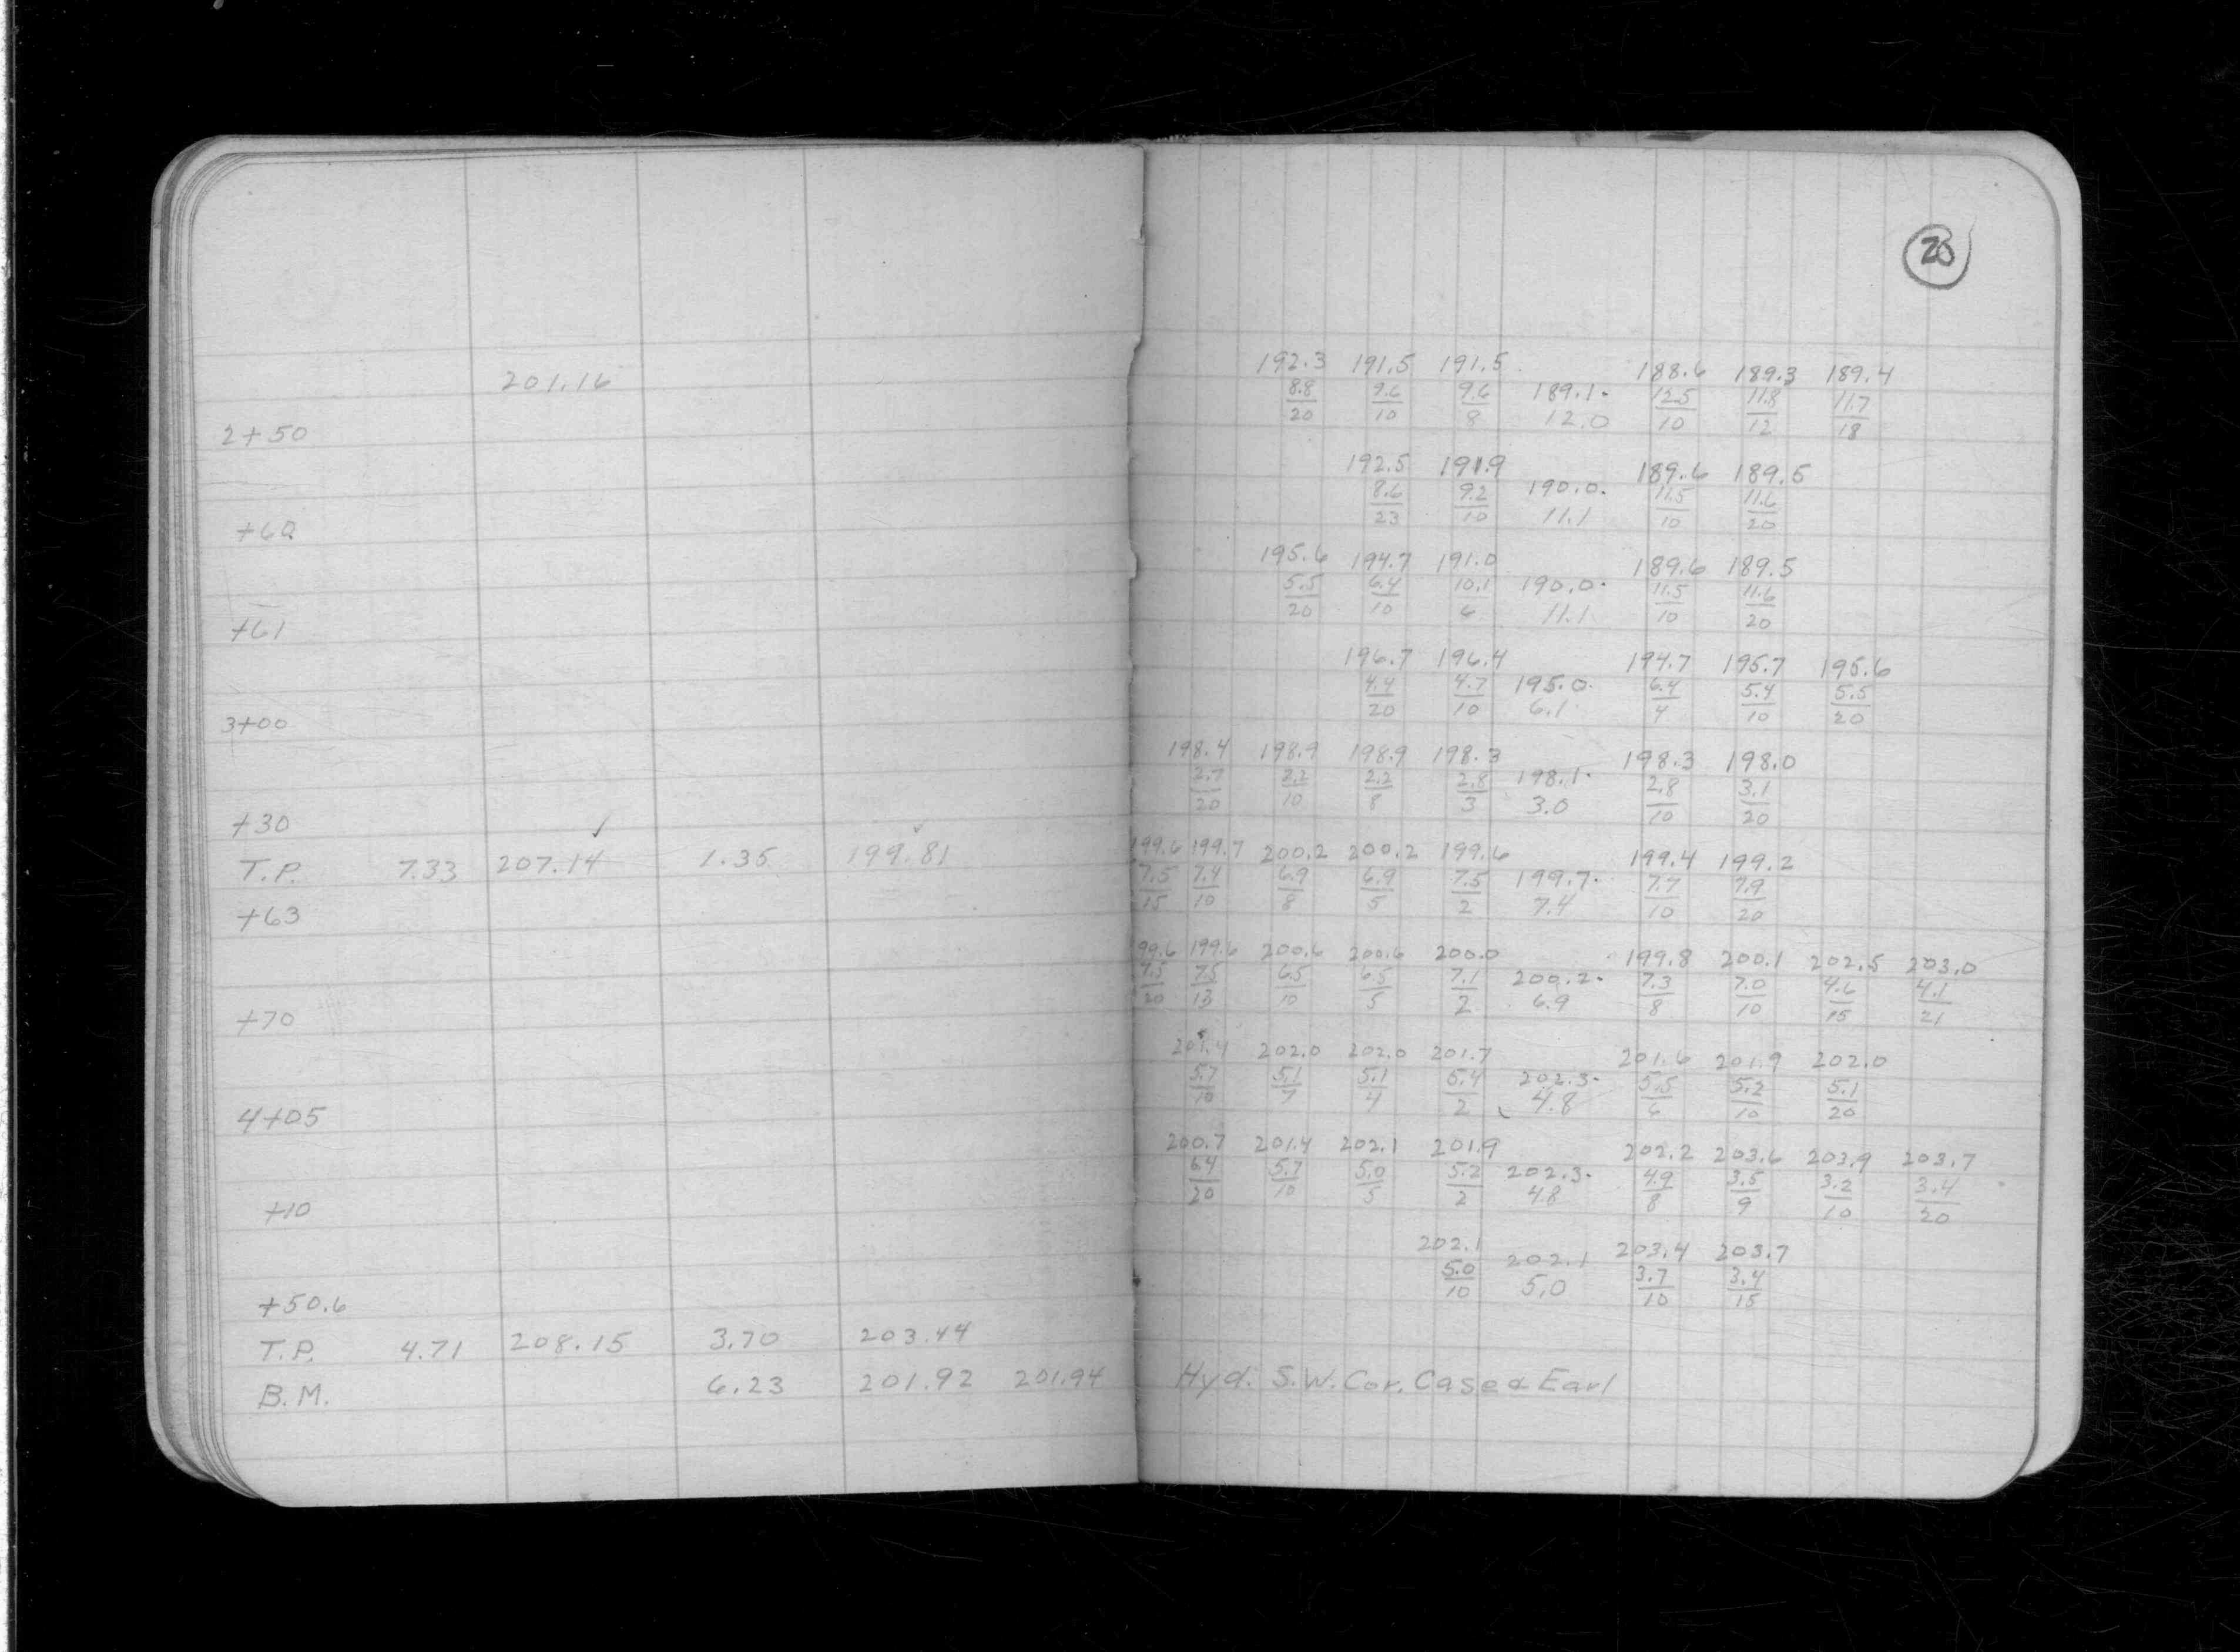 20
201.16
192.3 191.5 191.5 188.6 189.3 189.4
8.8 9.6 9.6 189.1. 12.5 11.8 11.7
20 10 8 12.0 10 12 18
2+50
192.5 191.9 189.6 189.5
8.6 9.2 190.0. 11.5 11.6
23 10 11.1 10 20
+60
195.6 194.7 191.0 189.6 189.5
5.5 6.4 10.1 190.0. 11.5 11.6
20 10 6 11.1 10 20
+61
196.7 196.4 194.7 195.7 195.6
4.4 4.7 195.0. 6.4 5.4 5.5
20 10 6.1 4 10 20
3+00
198.4 198.9 198.9 198.3 198.3 198.0
2.7 2.2 2.2 2.8 198.1. 2.8 3.1
20 10 8 3 3.0 10 20
+30
T.P. 7.33 207.14 1.35 199.81
199.6 199.7 200.2 200.2 199.6 199.4 199.2
7.5 7.4 6.9 6.9 7.5 199.7. 7.7 7.9
15 10 8 5 2 7.4 10 20
+63
99.6 199.6 200.6 200.6 200.0 199.8 200.1 202.5 203.0
7.5 7.5 6.5 6.5 7.1 200.2. 7.3 7.0 4.6 4.1
20 13 10 5 2 6.9 8 10 15 21
+70
201.4 202.0 202.0 201.7 201.6 201.9 202.0
5.7 5.1 5.1 5.4 202.3. 5.5 5.2 5.1
10 7 4 2 4.8 6 10 20
4+05
200.7 201.4 202.1 201.9 202.2 203.6 203.9 203.7
6.4 5.7 5.0 5.2 202.3. 4.9 3.5 3.2 3.4
20 10 5 2 4.8 8 9 10 20
+10
202.1 202.1 203.4 203.7
5.0 5.0 3.7 3.4
10 10 15
+50.6
T.P. 4.71 208.15 3.70 203.44
B.M. 6.23 201.92 201.94 Hyd. S.W. Cor. Case & Earl